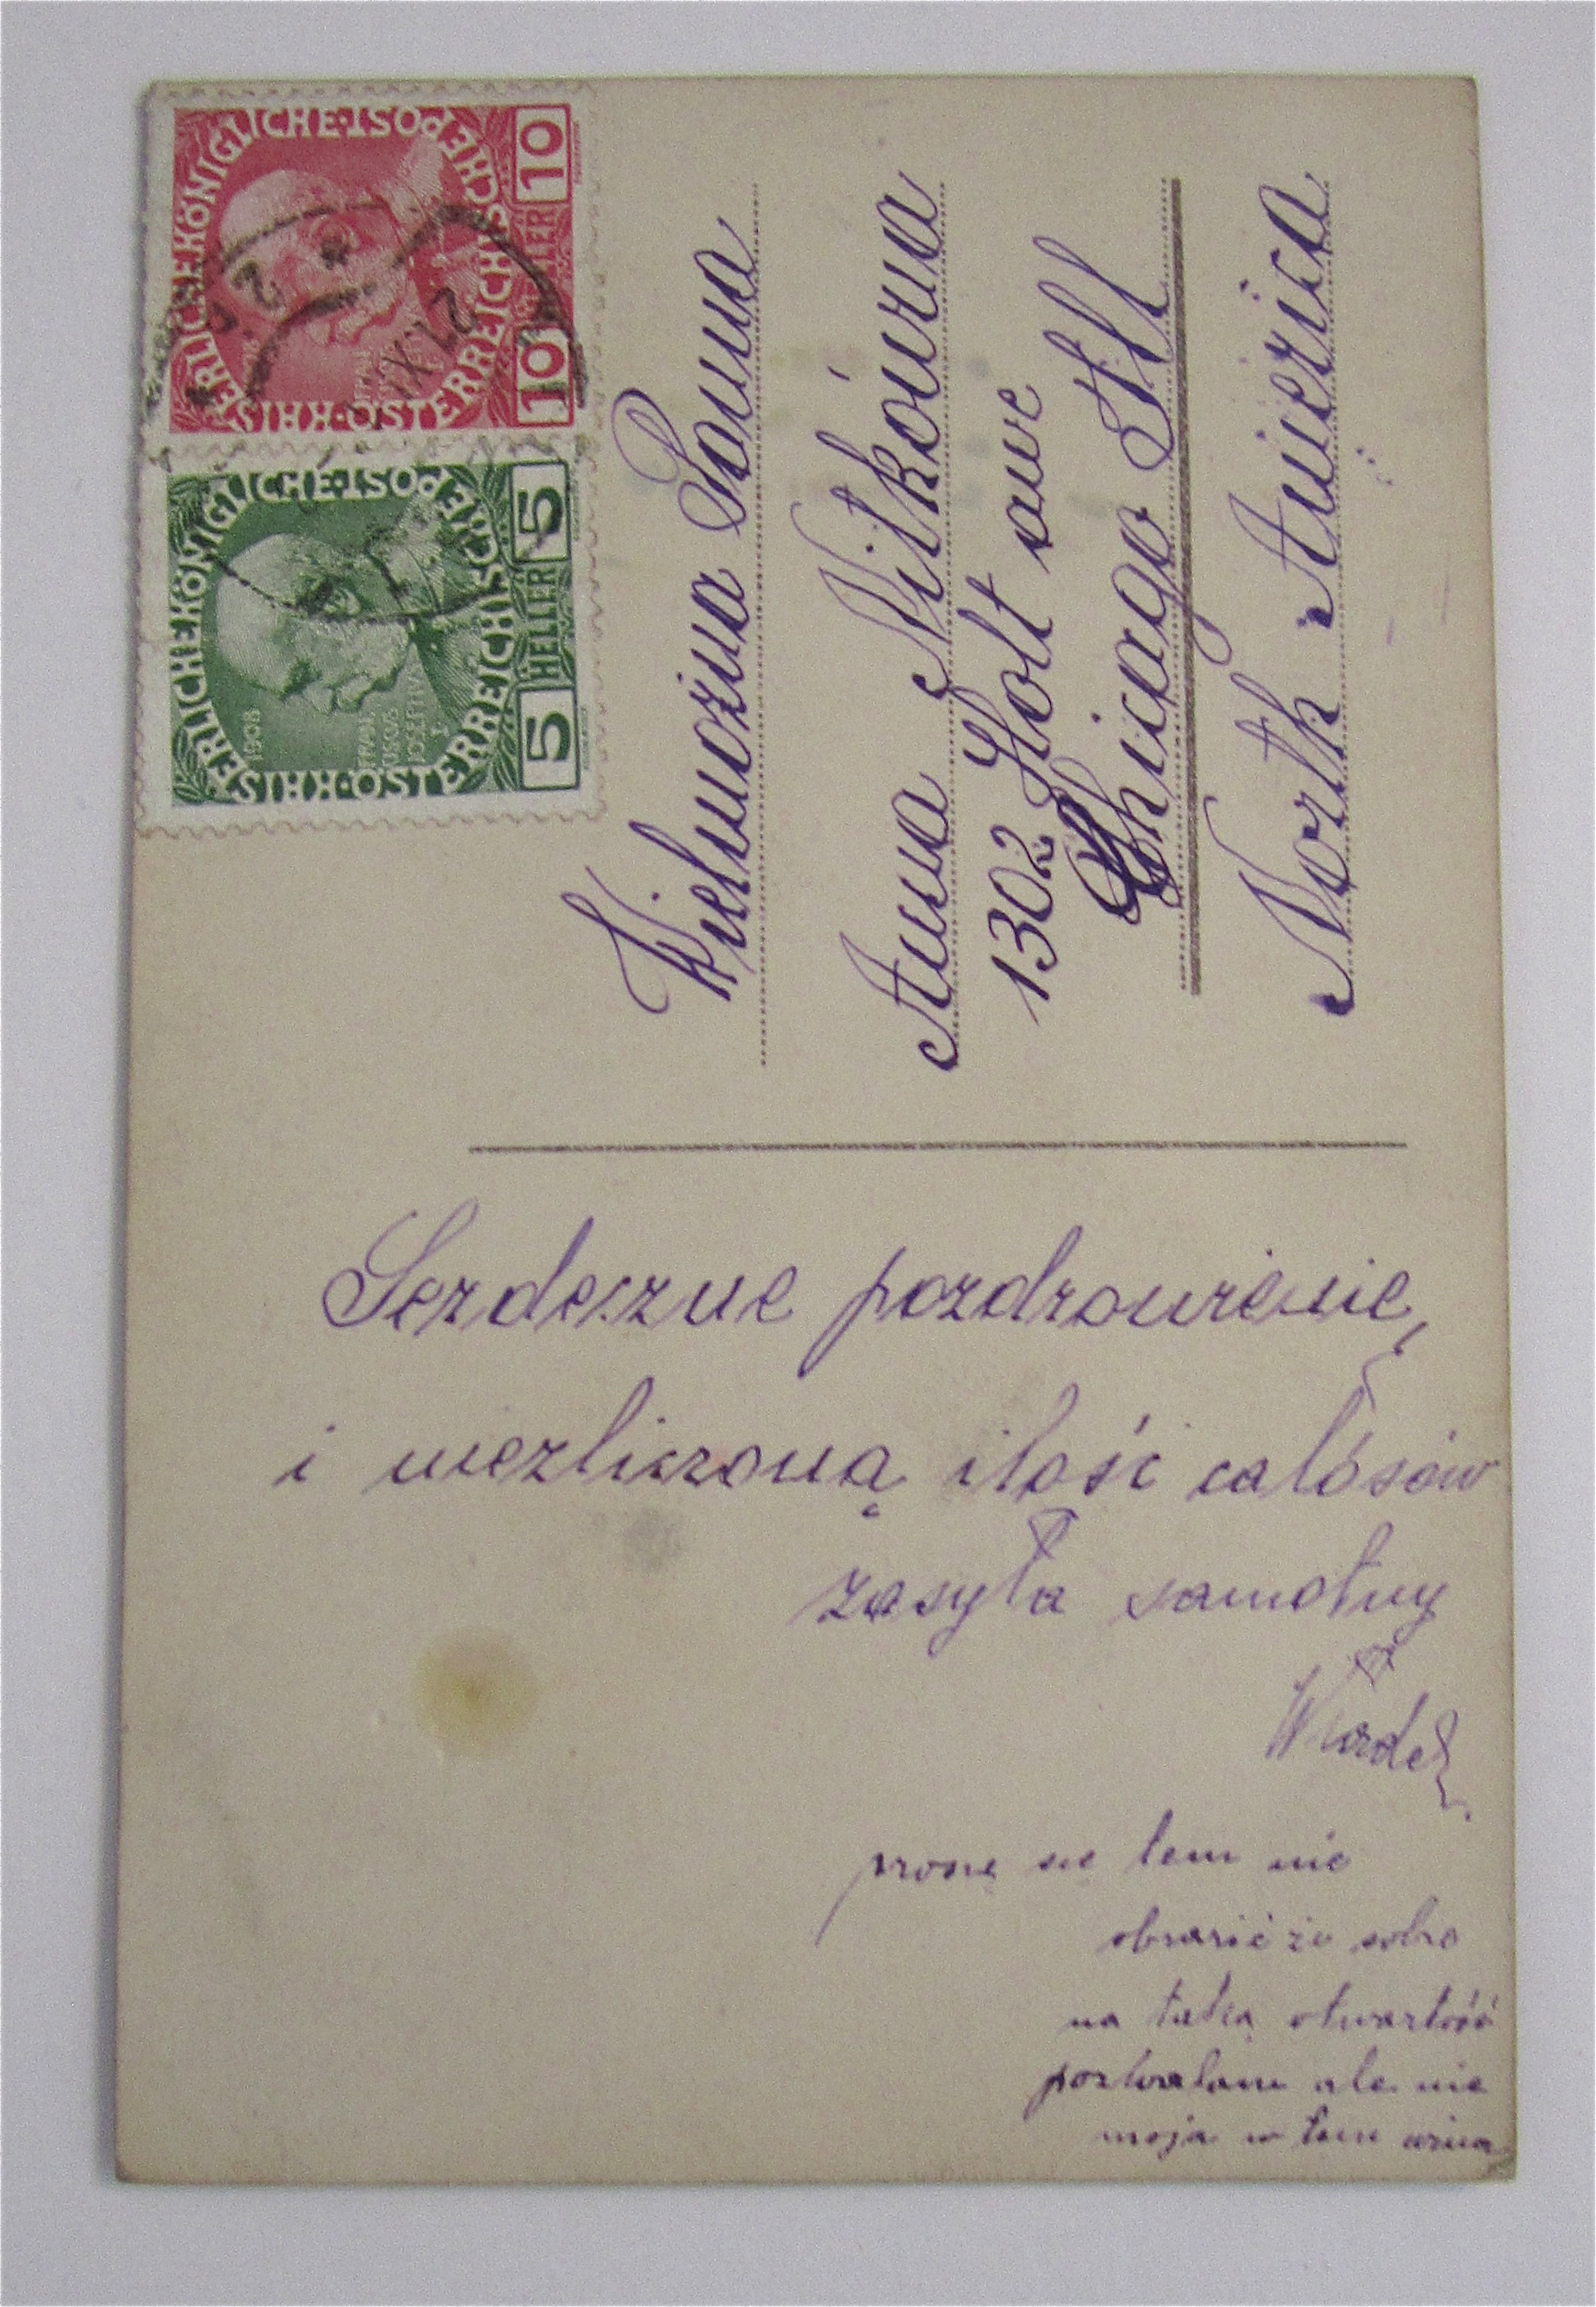 KAISERLICHE KÖNIGLICHE POST
ÖSTERREICHISCHE
10 HELLER 10
KAISERLICHE KÖNIGLICHE POST
ÖSTERREICHISCHE
1908
5 HELLER 5
Wielmożna Panna
Anna Nitkówna
1302 Holt awe
Chicago Ill
North America
Serdeczne pozdrowienie,
i niezliczoną ilość całósów
zasyła samotny
Władek
proszę się tem nie
obrazić że sobie
na taką otwartość
pozwalam ale nie
moja w tem wina